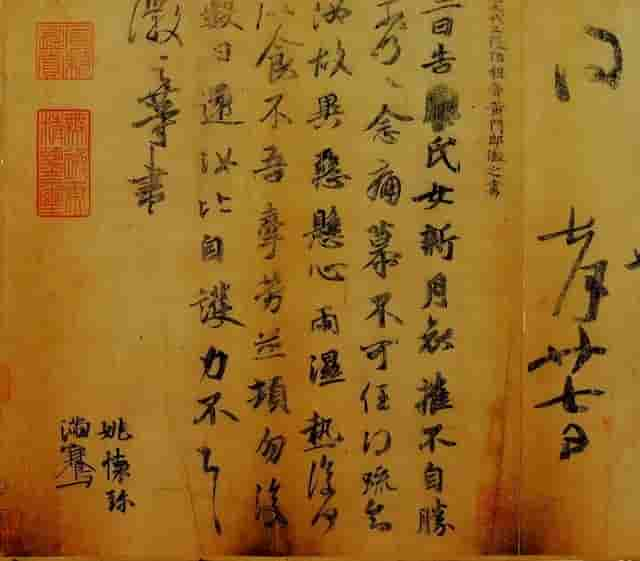 七月廿七日
代三從伯祖晉黃門郎徽之書
二日告氏女新月哀摧不自勝
奈何〻念痛慕不可任得疏知
汝故異惡懸心雨濕熱復何
似食不吾牽勞並頓勿復
數日還汝比自護力不具
徽之等書
姚懷珍
滿騫